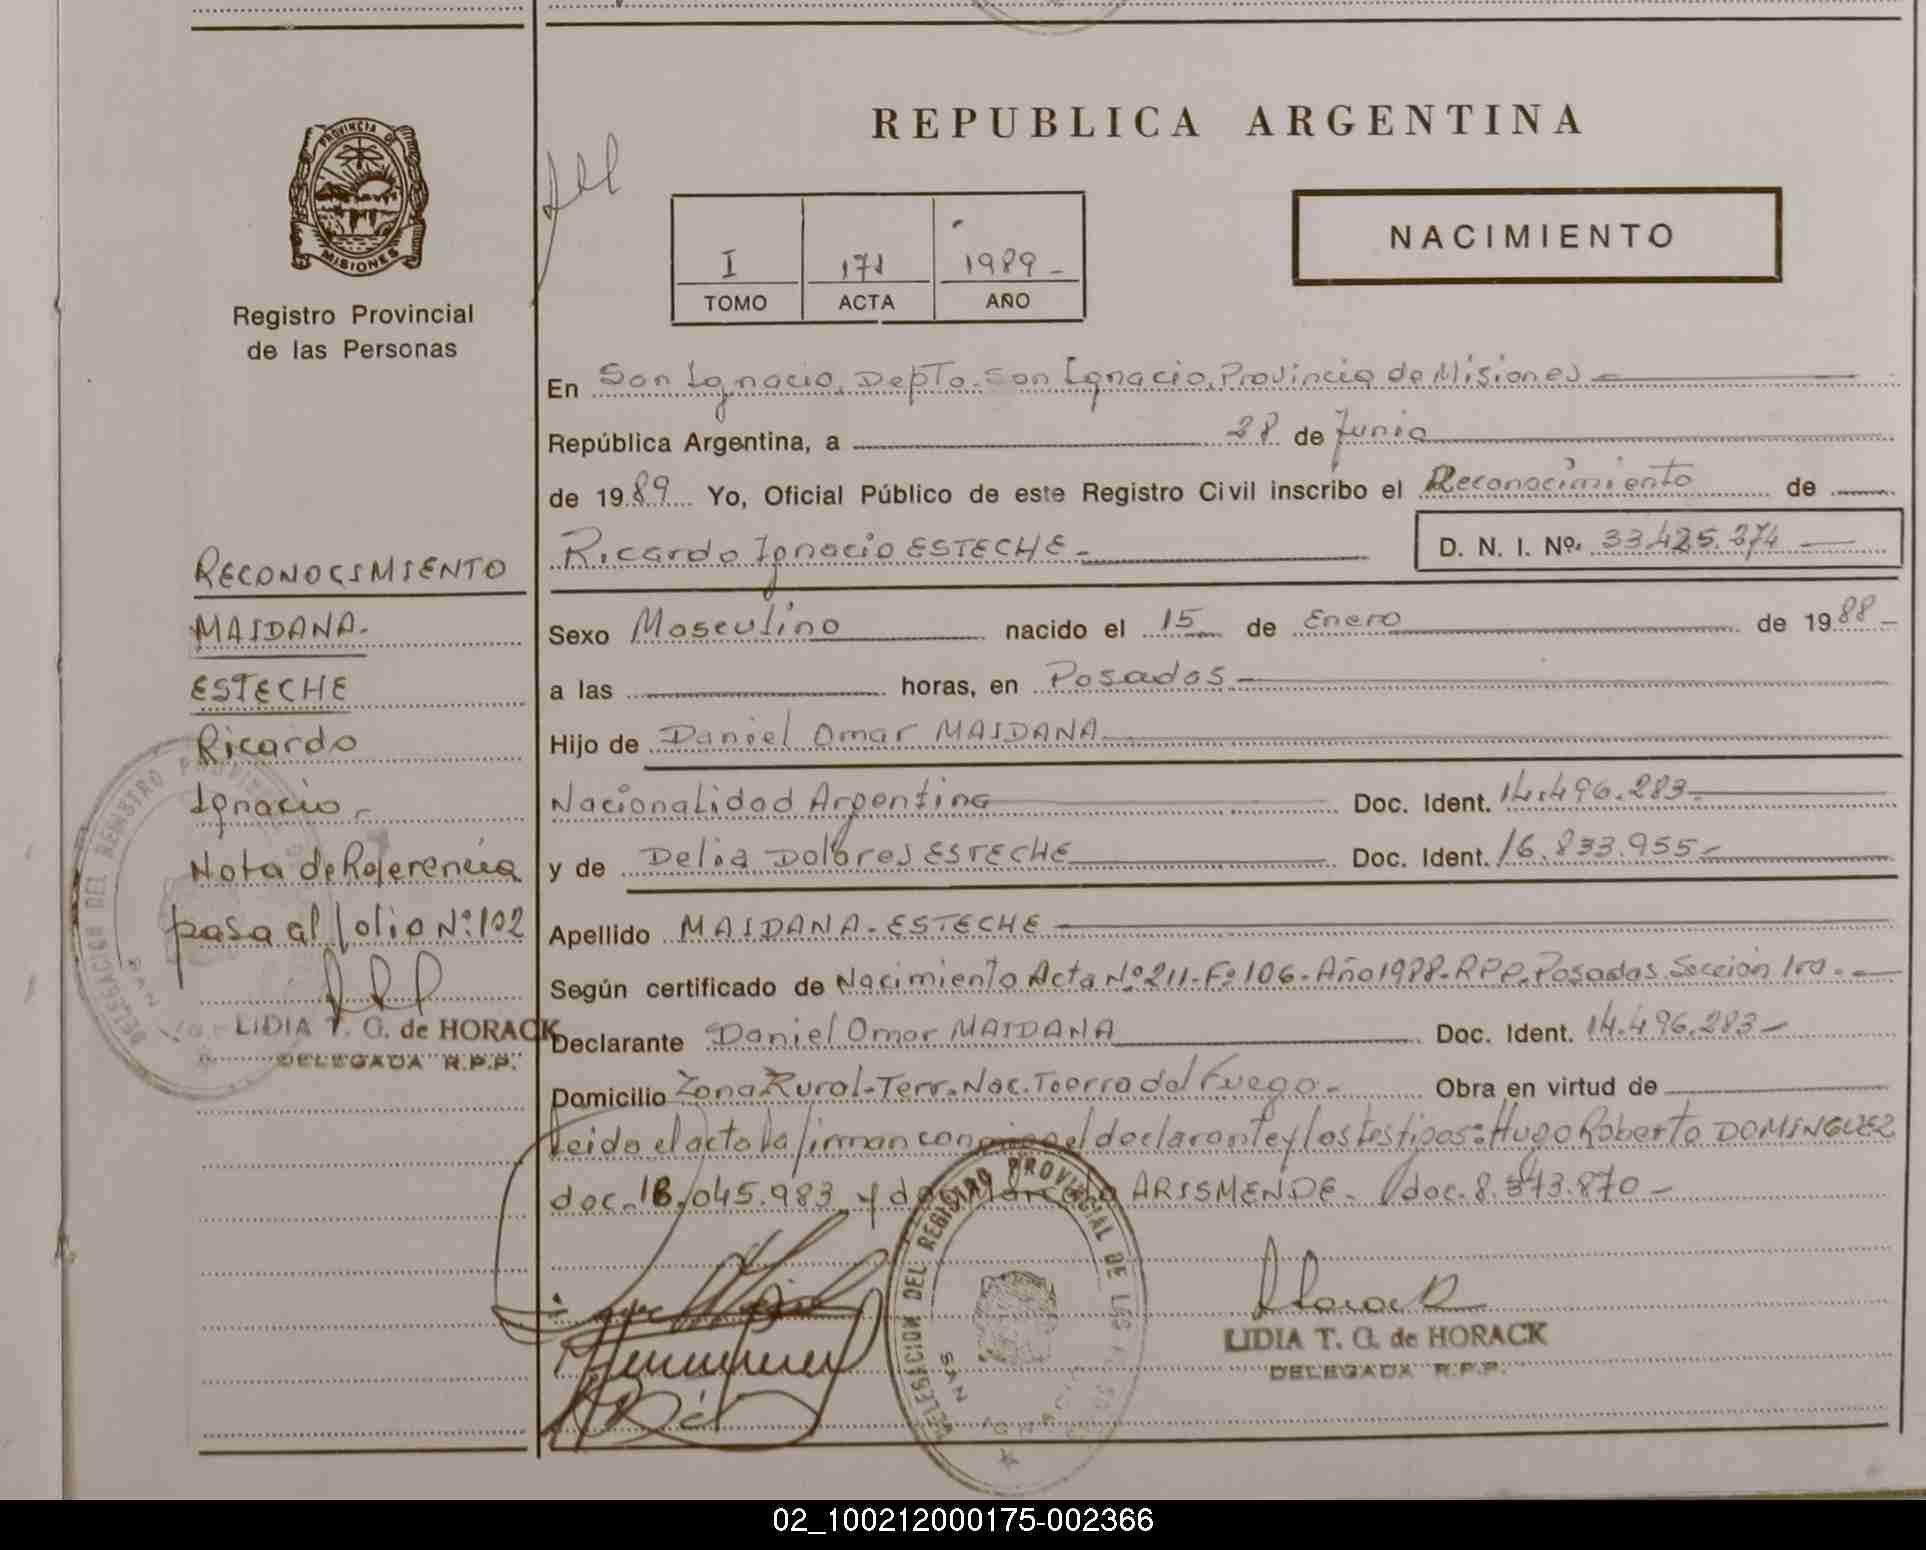 REPUBLICA ARGENTINA
NACIMIENTO
PROVINCIA DE
MISIONES
Registro Provincial
de las Personas
I 171 1989
TOMO ACTA AÑO
En San Ignacio, Depto. San Ignacio, Provincia de Misiones
República Argentina, a 28 de Junio
de 1989 Yo, Oficial Público de este Registro Civil inscribo el Reconocimiento de
Ricardo Ignacio ESTECHE - D. N. I. Nº. 33.425.274
Sexo Masculino nacido el 15 de Enero de 1988
a las horas, en Posadas
Hijo de Daniel Omar MAIDANA
Nacionalidad Argentina Doc. Ident. 14.496.283
y de Delia Dolores ESTECHE Doc. Ident. 16.833.955
Apellido MAIDANA - ESTECHE
Según certificado de Nacimiento Acta Nº 211 - Fº 106 - Año 1988 - RPP. Posadas Sección 1ra.
Declarante Daniel Omar MAIDANA Doc. Ident. 14.496.283
Domicilio Zona Rural - Terr. Nac. Tierra del Fuego - Obra en virtud de
leido el acto la firman conmigo el declarante y los testigos: Hugo Roberto DOMINGUEZ
doc. 18.045.983 y don Marcelo ARISMENDE - doc. 8.343.870
LIDIA T. G. de HORACK
DELEGADA R.P.P.
DELEGACION DEL REGISTRO PROVINCIAL DE LAS
SAN IGNACIO
RECONOCIMIENTO
MAIDANA-
ESTECHE
Ricardo
Ignacio -
Nota de Referencia
pasa al folio Nº: 102
LIDIA T. G. de HORACK
DELEGADA R.P.P.
DELEGACION DEL REGISTRO PROVINCIAL
SAN
02_100212000175-002366